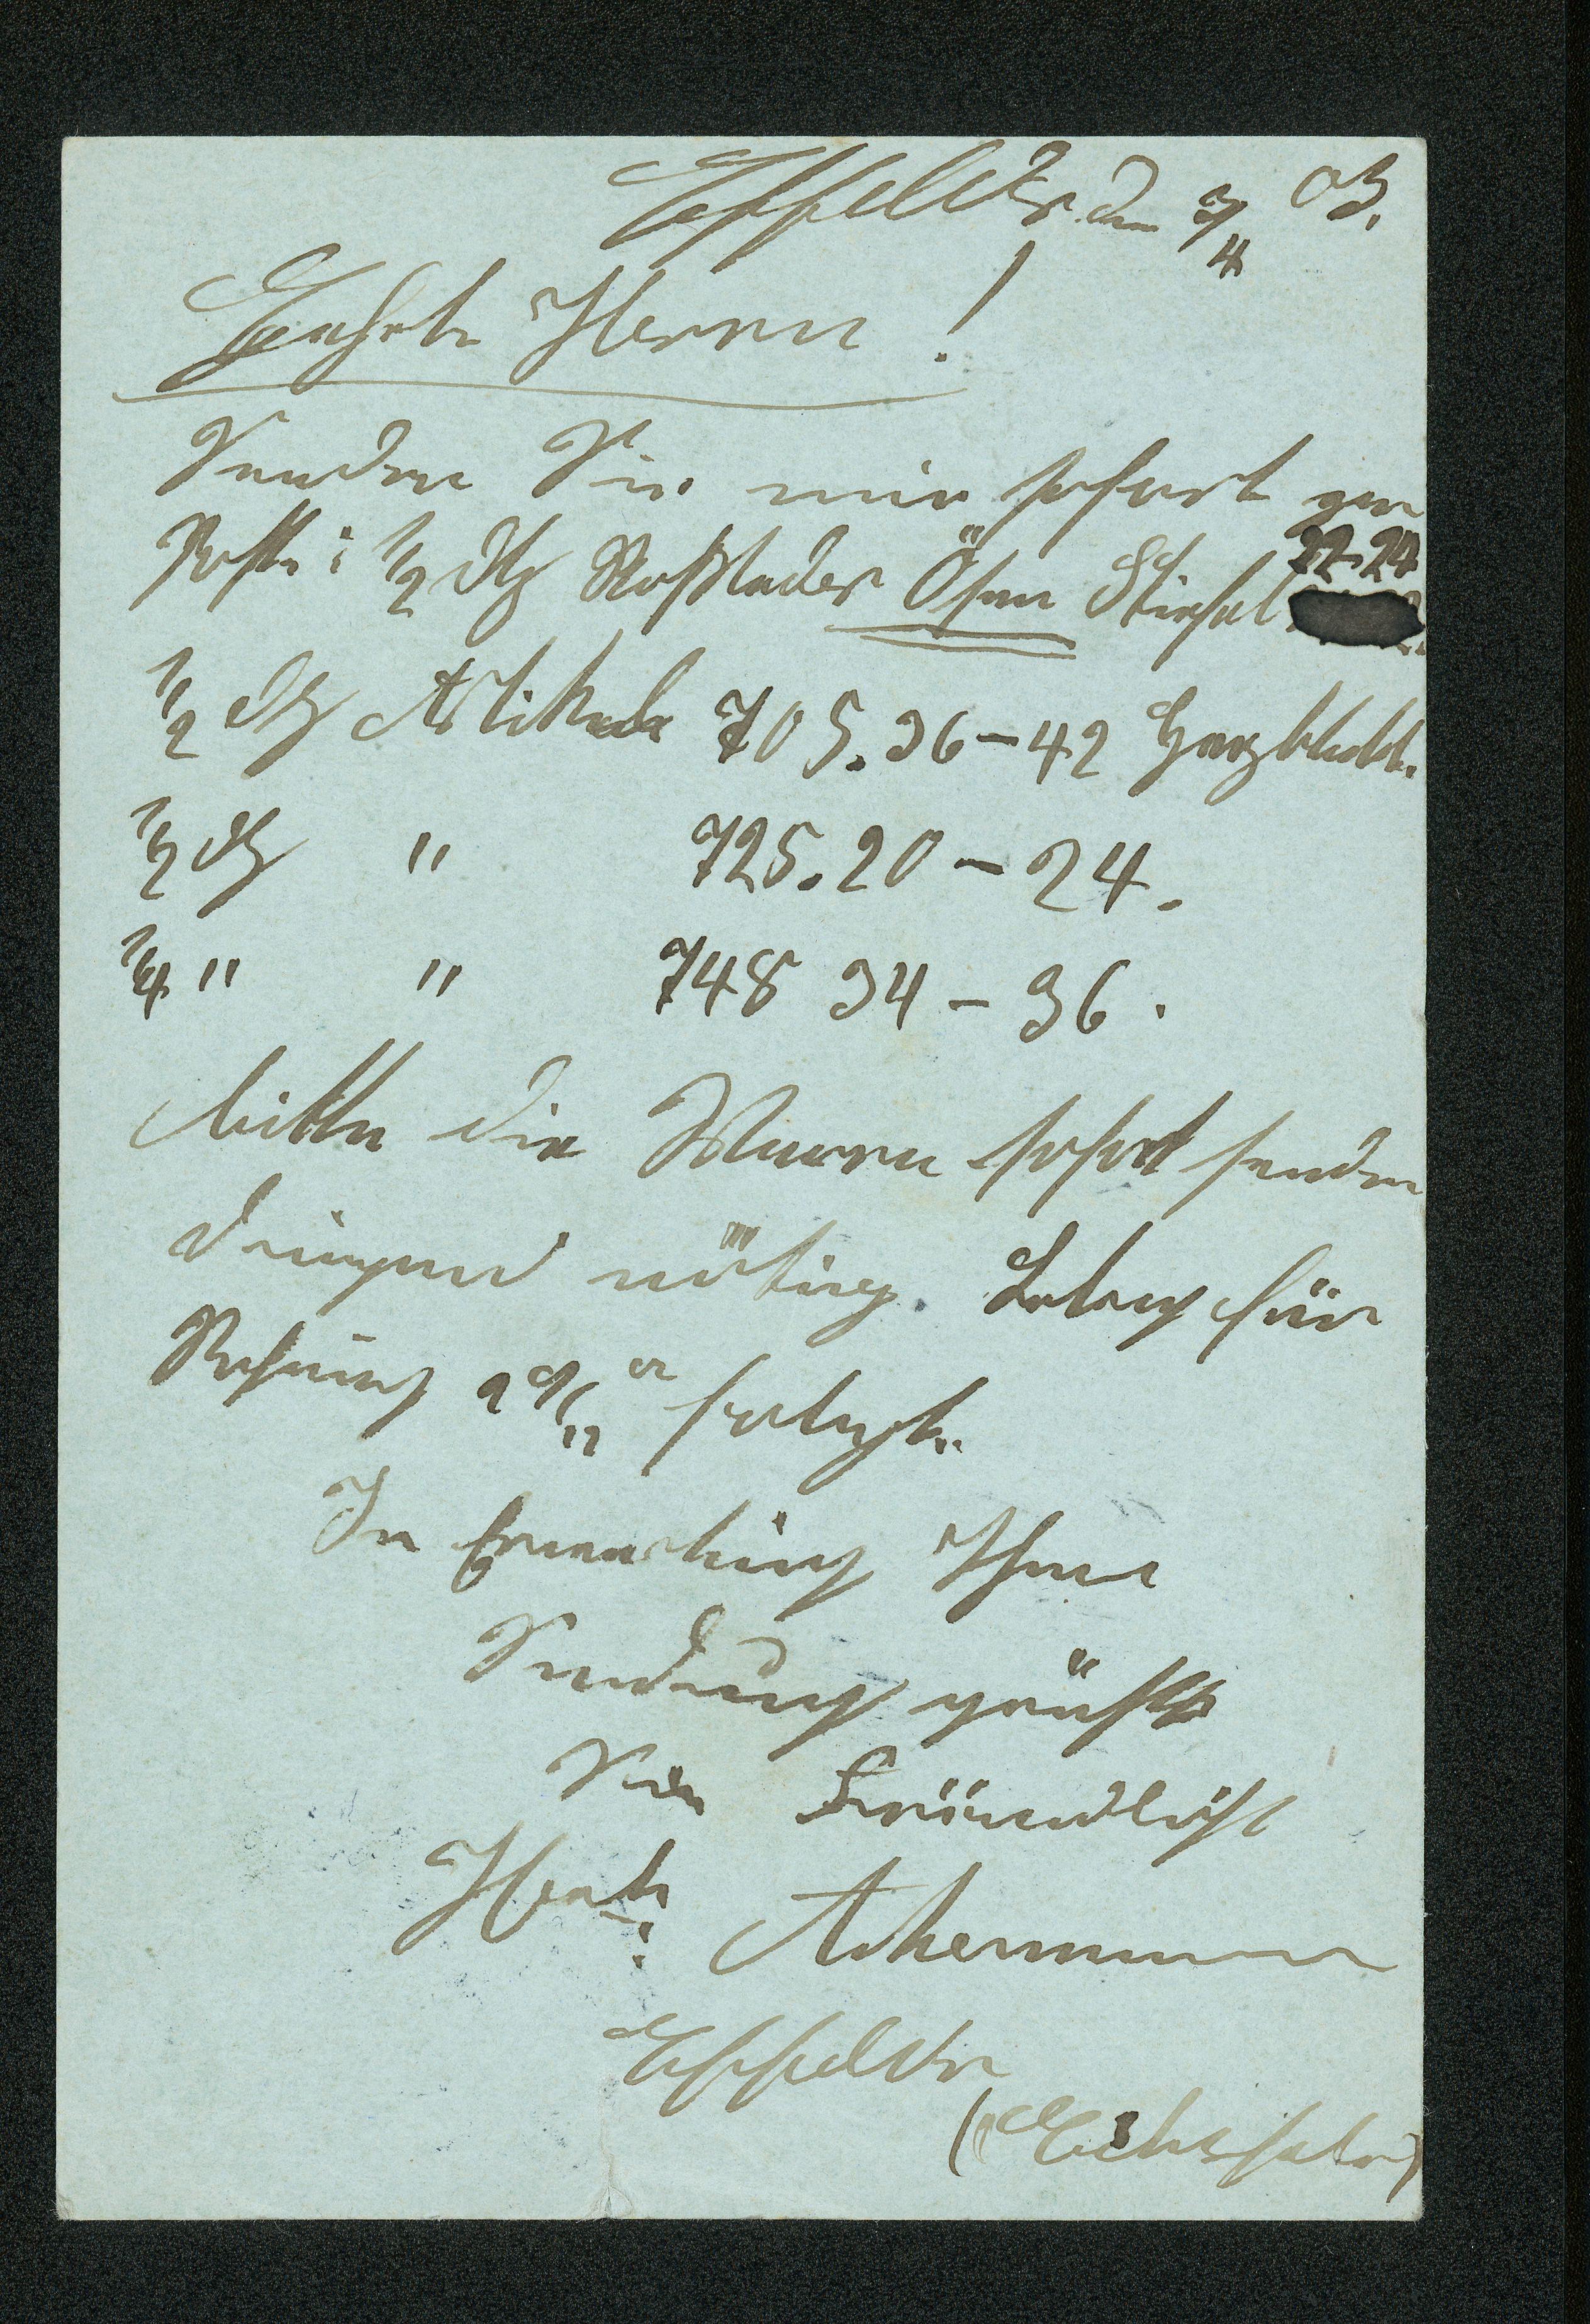 Effelder den 3/4 03.
Geehrte Herrn!
Senden Sie mir sofort per
Post: 1/2 Dtz Roßleder Ösen Stiefel 22-24
1/2 Dtz Artikel 705. 36-42
1/2 Dtz " 725. 20-24.
1/4 " " 748 34-36.
bitte die Waren sofort senden
dringend nötig. Betrag für
Rechnung
In Erwartung Ihrer
Sendung grüßt
Sie Freundlichst
Ackermann
Effelder
(Eichsfeld)